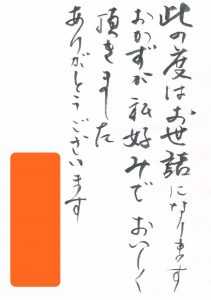 此の度はお世話になります
おかずが私好みでおいしく
頂きました
ありがとうございます